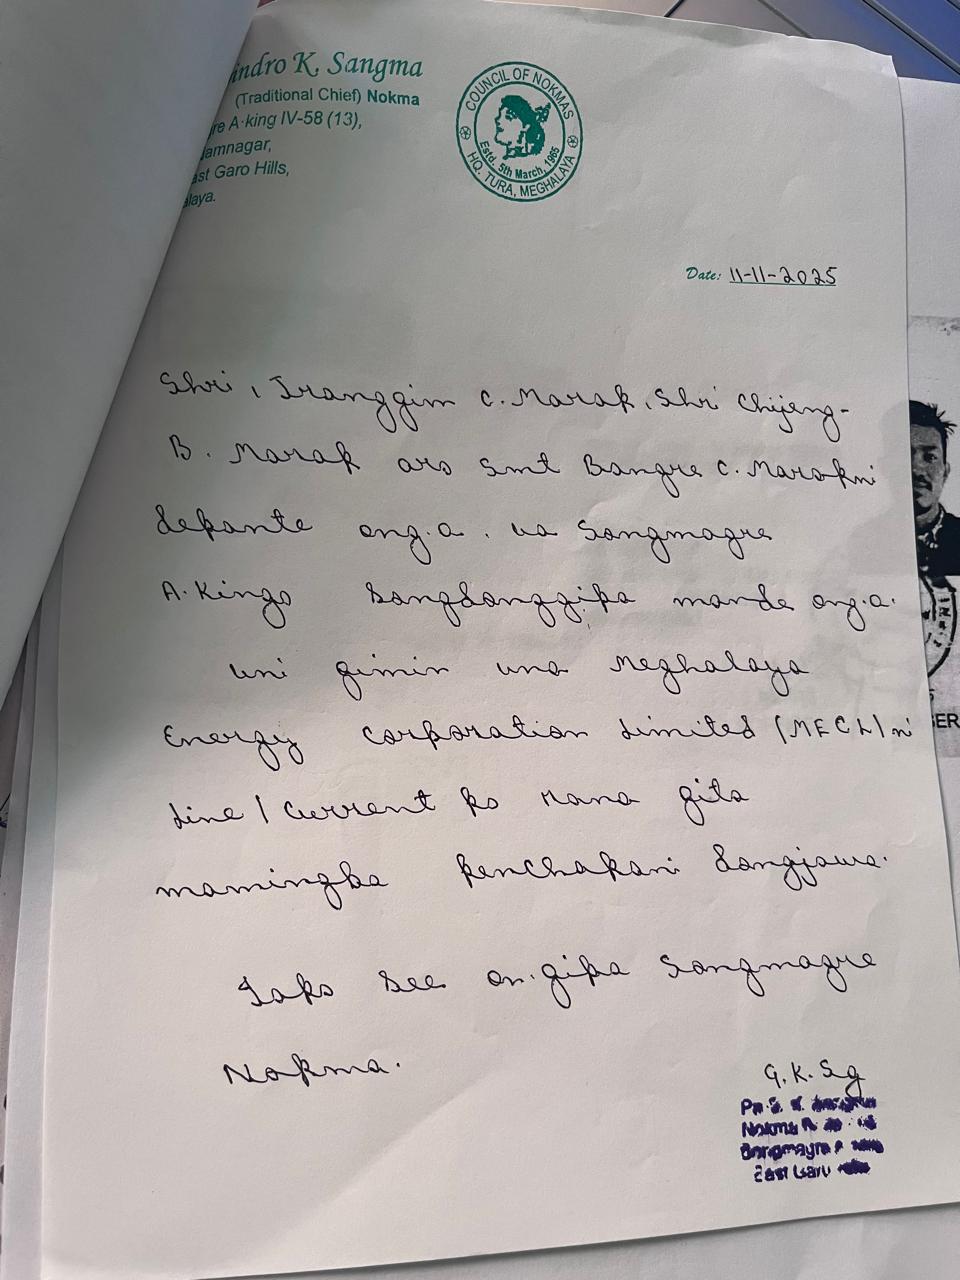 indro K. Sangma
(Traditional Chief) Nokma
re A·king IV-58 (13),
amnagar,
ast Garo Hills,
alaya.
COUNCIL OF NOKMAS
Estd. 5th March, 1965
HQ. TURA, MEGHALAYA
Date: 11-11-2025
Shri, Iranggim C. Marak, Shri Chijeng-
B. Marak aro Smt Bangre C. Marakni
depante ong.a. ua Songmagre
A.Kingo Songdonggipa mande ong.a.
uni gimin una Meghalaya
Energy Corporation Limited (MECL) ni
Line / Current ko mana gita
mamingba kenchakani dongjawa.
Iako see on.gipa Songmagre
Nokma.
G. K. Sg
Nokma
Songmagre
East Garo
ER